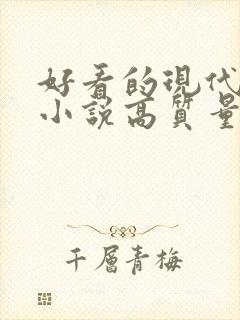 好看的現代
小說高質量
千層青梅